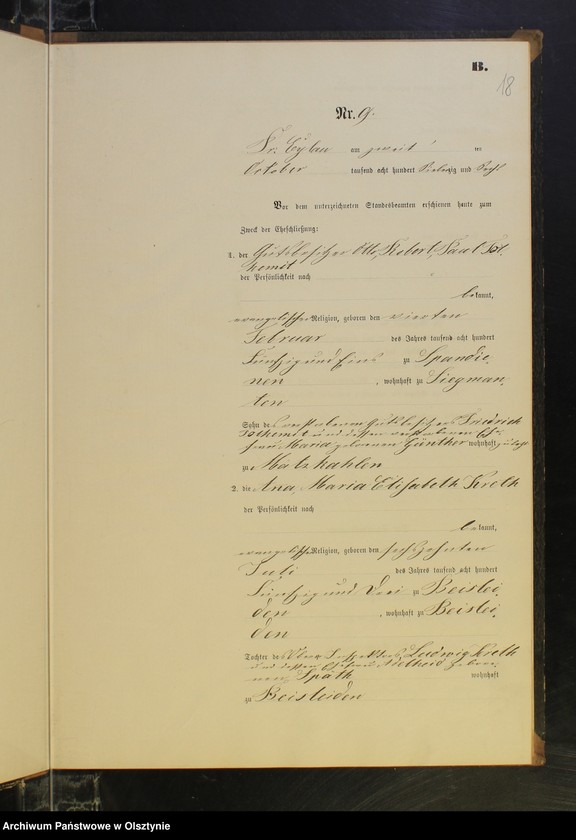 B.
18
Nr. 9.
Pr. Eylau am zweiten
October tausend acht hundert Siebenzig und Sechs
Vor dem unterzeichneten Standesbeamten erschienen heute zum
Zweck der Eheschließung:
1. der Gutsbesitzer Otto, Robert, Paul
der Persönlichkeit nach
bekannt,
evangelischer Religion, geboren den vierten
Februar des Jahres tausend acht hundert
Fünfzig und Eins zu Spandie-
nen, wohnhaft zu Liegman-
ten
Sohn des verstorbenen Gutsbesitzers Friedrich
und dessen verstorbenen
Maria geborenen Günther wohnhaft
zu Matzkahlen
2. die Ana, Maria Elisabeth Kreth
der Persönlichkeit nach
bekannt,
evangelischer Religion, geboren den sechszehnten
Juli des Jahres tausend acht hundert
Fünfzig und Drei zu Beislei-
den, wohnhaft zu Beislei-
den
Tochter des Ober-Inspektors Ludwig Kreth
und dessen Ehefrau Adelheid gebore-
nen Späth wohnhaft
zu Beisleiden
Archiwum Państwowe w Olsztynie